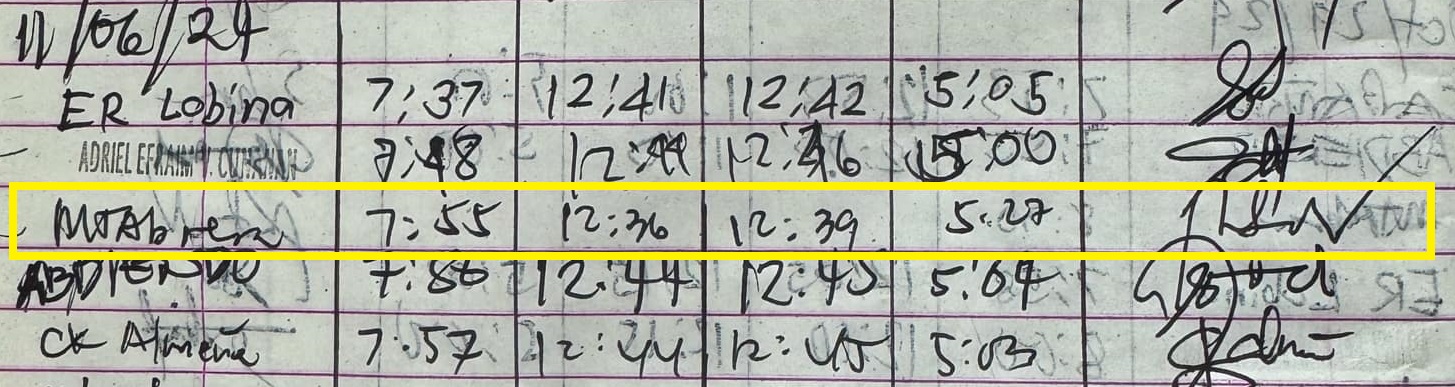 11/06/24
ER Lobina 7:37 12:41 12:42 5:05
ADRIEL EFRAIM 7:48 12:44 12:46 5:00
MTAbrera 7:55 12:36 12:39 5:27
ABDIENDO 7:56 12:44 12:45 5:04
CK Almeña 7:57 12:44 12:45 5:03